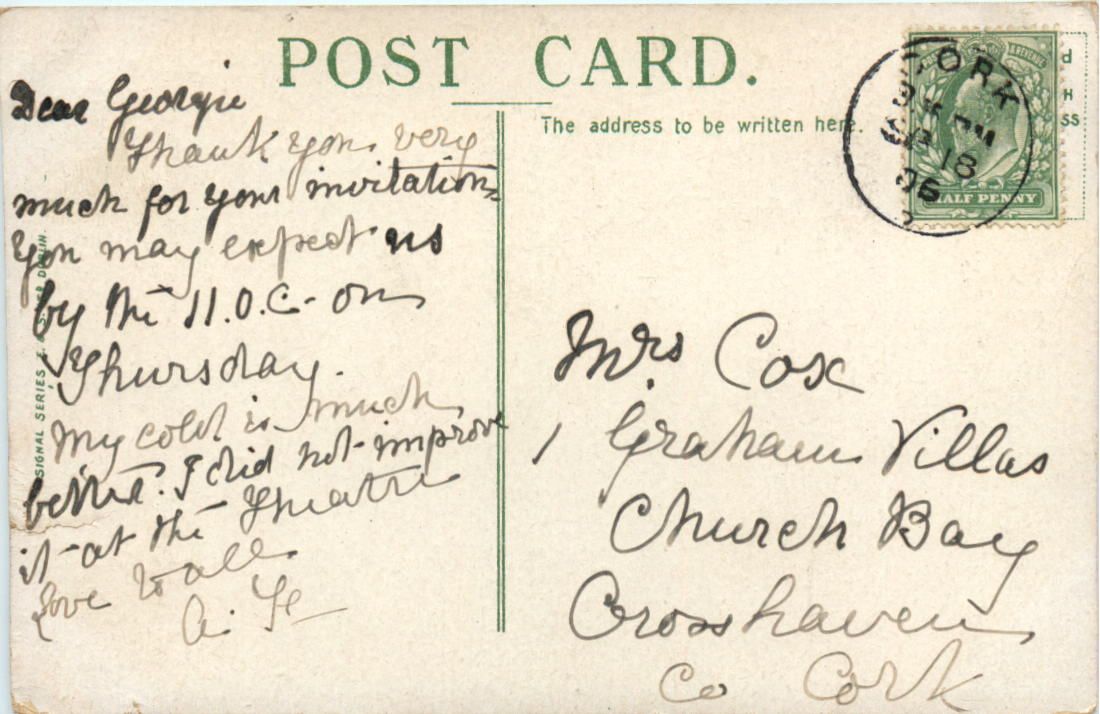 POST CARD.
The address to be written here.
Dear Georgie
Thank you very
much for your invitation
You may expect us
by the 11.0.C- on
Thursday.
My cold is much
better. I did not improve
it at the Theatre
Love to all
A.
SIGNAL SERIES, DUBLIN.
CORK
PM
18
06
HALF PENNY
Mrs Cox
1 Graham Villas
Church Bay
Crosshaven
Co Cork